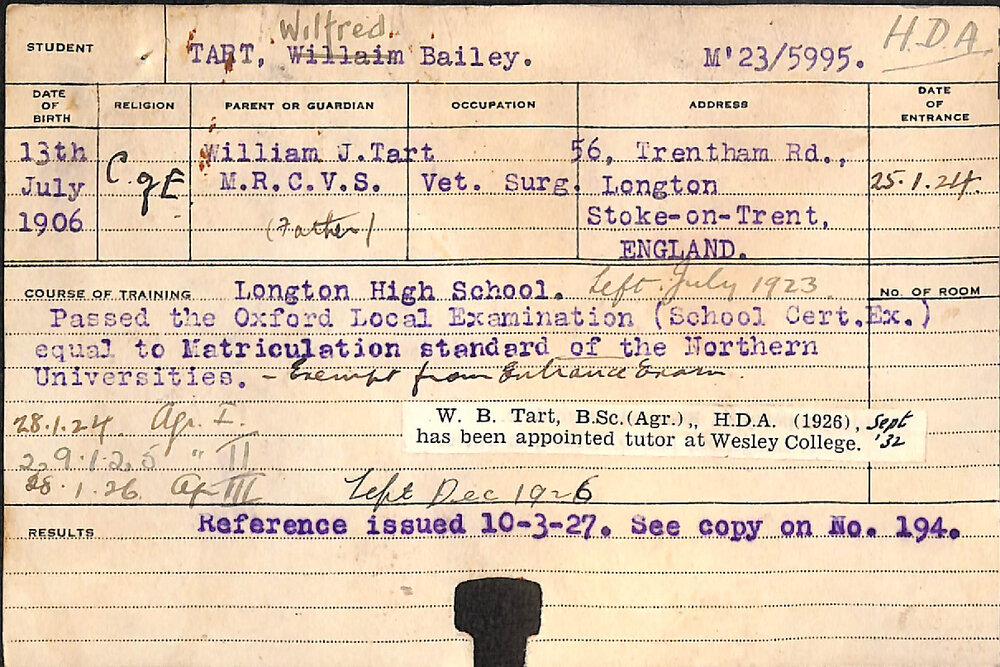 Wilfred
STUDENT TART, Willaim Bailey. M'23/5995. H.D.A
DATE OF BIRTH RELIGION PARENT OR GUARDIAN OCCUPATION ADDRESS DATE OF ENTRANCE
13th C of E William J.Tart 56, Trentham Rd.,
July M.R.C.V.S. Vet. Surg. Longton 25.1.24.
1906 (Father) Stoke-on-Trent,
ENGLAND.
COURSE OF TRAINING Longton High School. Left July 1923 No. OF ROOM
Passed the Oxford Local Examination (School Cert.Ex.)
equal to Matriculation standard of the Northern
Universities. - Exempt from Entrance Exam.
28.1.24 Agr. I.
W. B. Tart, B.Sc.(Agr.),, H.D.A. (1926), Sept
has been appointed tutor at Wesley College. '32
29.1.25 " II
28.1.26 Ag III Left Dec 1926
RESULTS Reference issued 10-3-27. See copy on No. 194.